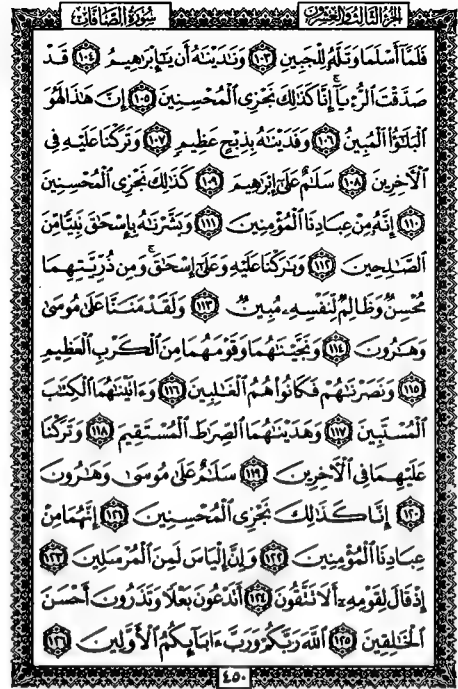 سُورَةُ الصَّافَّاتِ الجُزْءُ الثَّالِثُ وَالعِشْرُونَ
فَلَمَّآ أَسْلَمَا وَتَلَّهُۥ لِلْجَبِينِ ١٠٣ وَنَٰدَيْنَٰهُ أَن يَٰٓإِبْرَٰهِيمُ ١٠٤ قَدْ
صَدَّقْتَ ٱلرُّءْيَآ ۚ إِنَّا كَذَٰلِكَ نَجْزِى ٱلْمُحْسِنِينَ ١٠٥ إِنَّ هَٰذَا لَهُوَ
ٱلْبَلَٰٓؤُا۟ ٱلْمُبِينُ ١٠٦ وَفَدَيْنَٰهُ بِذِبْحٍ عَظِيمٍ ١٠٧ وَتَرَكْنَا عَلَيْهِ فِى
ٱلْءَاخِرِينَ ١٠٨ سَلَٰمٌ عَلَىٰٓ إِبْرَٰهِيمَ ١٠٩ كَذَٰلِكَ نَجْزِى ٱلْمُحْسِنِينَ
١١٠ إِنَّهُۥ مِنْ عِبَادِنَا ٱلْمُؤْمِنِينَ ١١١ وَبَشَّرْنَٰهُ بِإِسْحَٰقَ نَبِيًّا مِّنَ
ٱلصَّٰلِحِينَ ١١٢ وَبَٰرَكْنَا عَلَيْهِ وَعَلَىٰٓ إِسْحَٰقَ ۚ وَمِن ذُرِّيَّتِهِمَا
مُحْسِنٌ وَظَالِمٌ لِّنَفْسِهِۦ مُبِينٌ ١١٣ وَلَقَدْ مَنَنَّا عَلَىٰ مُوسَىٰ
وَهَٰرُونَ ١١٤ وَنَجَّيْنَٰهُمَا وَقَوْمَهُمَا مِنَ ٱلْكَرْبِ ٱلْعَظِيمِ
١١٥ وَنَصَرْنَٰهُمْ فَكَانُوا۟ هُمُ ٱلْغَٰلِبِينَ ١١٦ وَءَاتَيْنَٰهُمَا ٱلْكِتَٰبَ
ٱلْمُسْتَبِينَ ١١٧ وَهَدَيْنَٰهُمَا ٱلصِّرَٰطَ ٱلْمُسْتَقِيمَ ١١٨ وَتَرَكْنَا
عَلَيْهِمَا فِى ٱلْءَاخِرِينَ ١١٩ سَلَٰمٌ عَلَىٰ مُوسَىٰ وَهَٰرُونَ
١٢٠ إِنَّا كَذَٰلِكَ نَجْزِى ٱلْمُحْسِنِينَ ١٢١ إِنَّهُمَا مِنْ
عِبَادِنَا ٱلْمُؤْمِنِينَ ١٢٢ وَإِنَّ إِلْيَاسَ لَمِنَ ٱلْمُرْسَلِينَ ١٢٣
إِذْ قَالَ لِقَوْمِهِۦٓ أَلَا تَتَّقُونَ ١٢٤ أَتَدْعُونَ بَعْلًا وَتَذَرُونَ أَحْسَنَ
ٱلْخَٰلِقِينَ ١٢٥ ٱللَّهَ رَبَّكُمْ وَرَبَّ ءَابَآئِكُمُ ٱلْأَوَّلِينَ ١٢٦
٤٥٠